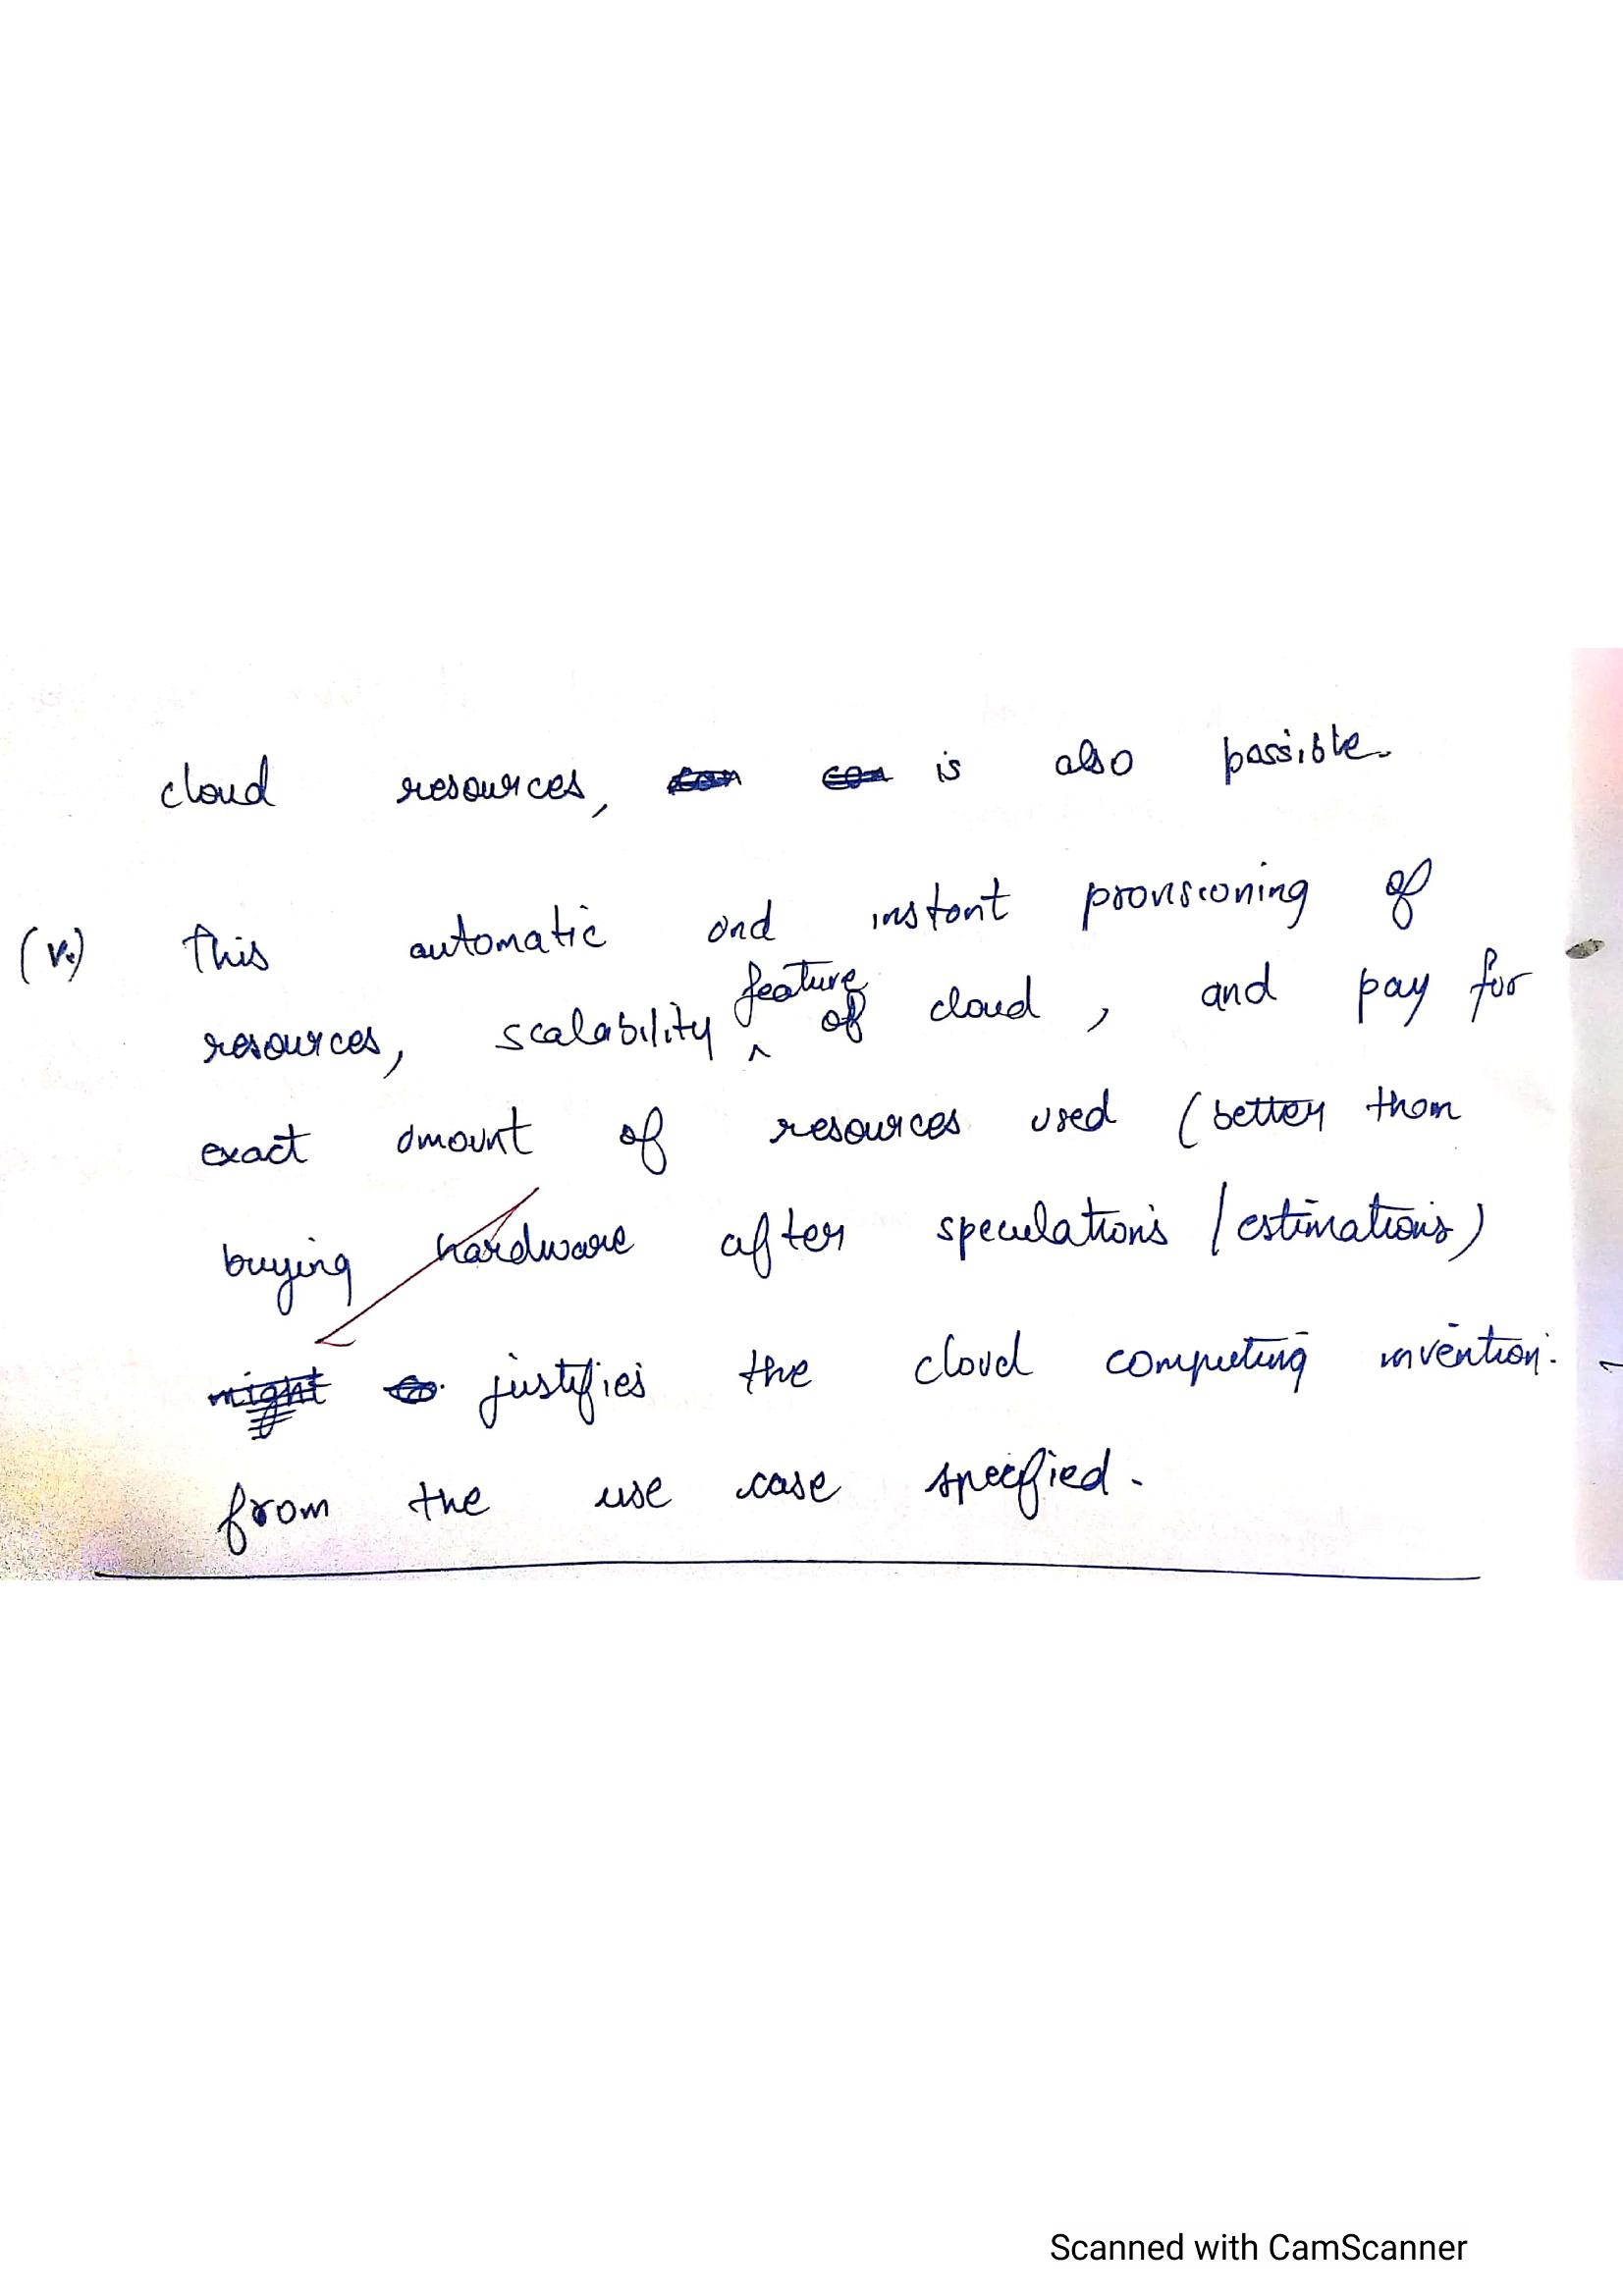 cloud resources, is also possible.
(v.) This automatic and instant provisioning of
resources, scalability feature of cloud, and pay for
exact amount of resources used (better than
buying hardware after speculations / estimations)
justifies the cloud computing invention.
from the use case specified.
Scanned with CamScanner